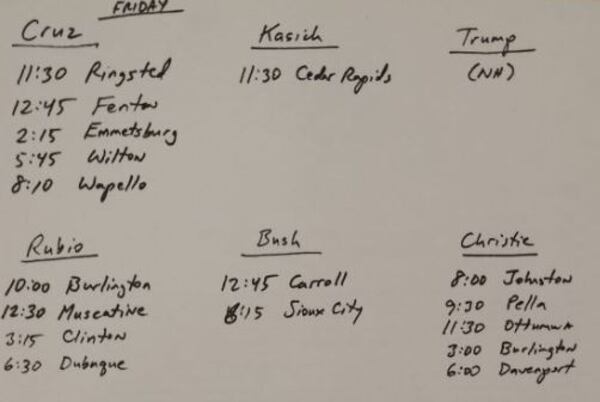 FRIDAY
Cruz
11:30 Ringsted
12:45 Fenton
2:15 Emmetsburg
5:45 Wilton
8:10 Wapello
Kasich
11:30 Cedar Rapids
Trump
(NH)
Rubio
10:00 Burlington
12:30 Muscatine
3:15 Clinton
6:30 Dubuque
Bush
12:45 Carroll
6:15 Sioux City
Christie
8:00 Johnston
9:30 Pella
11:30 Ottumwa
3:00 Burlington
6:00 Davenport